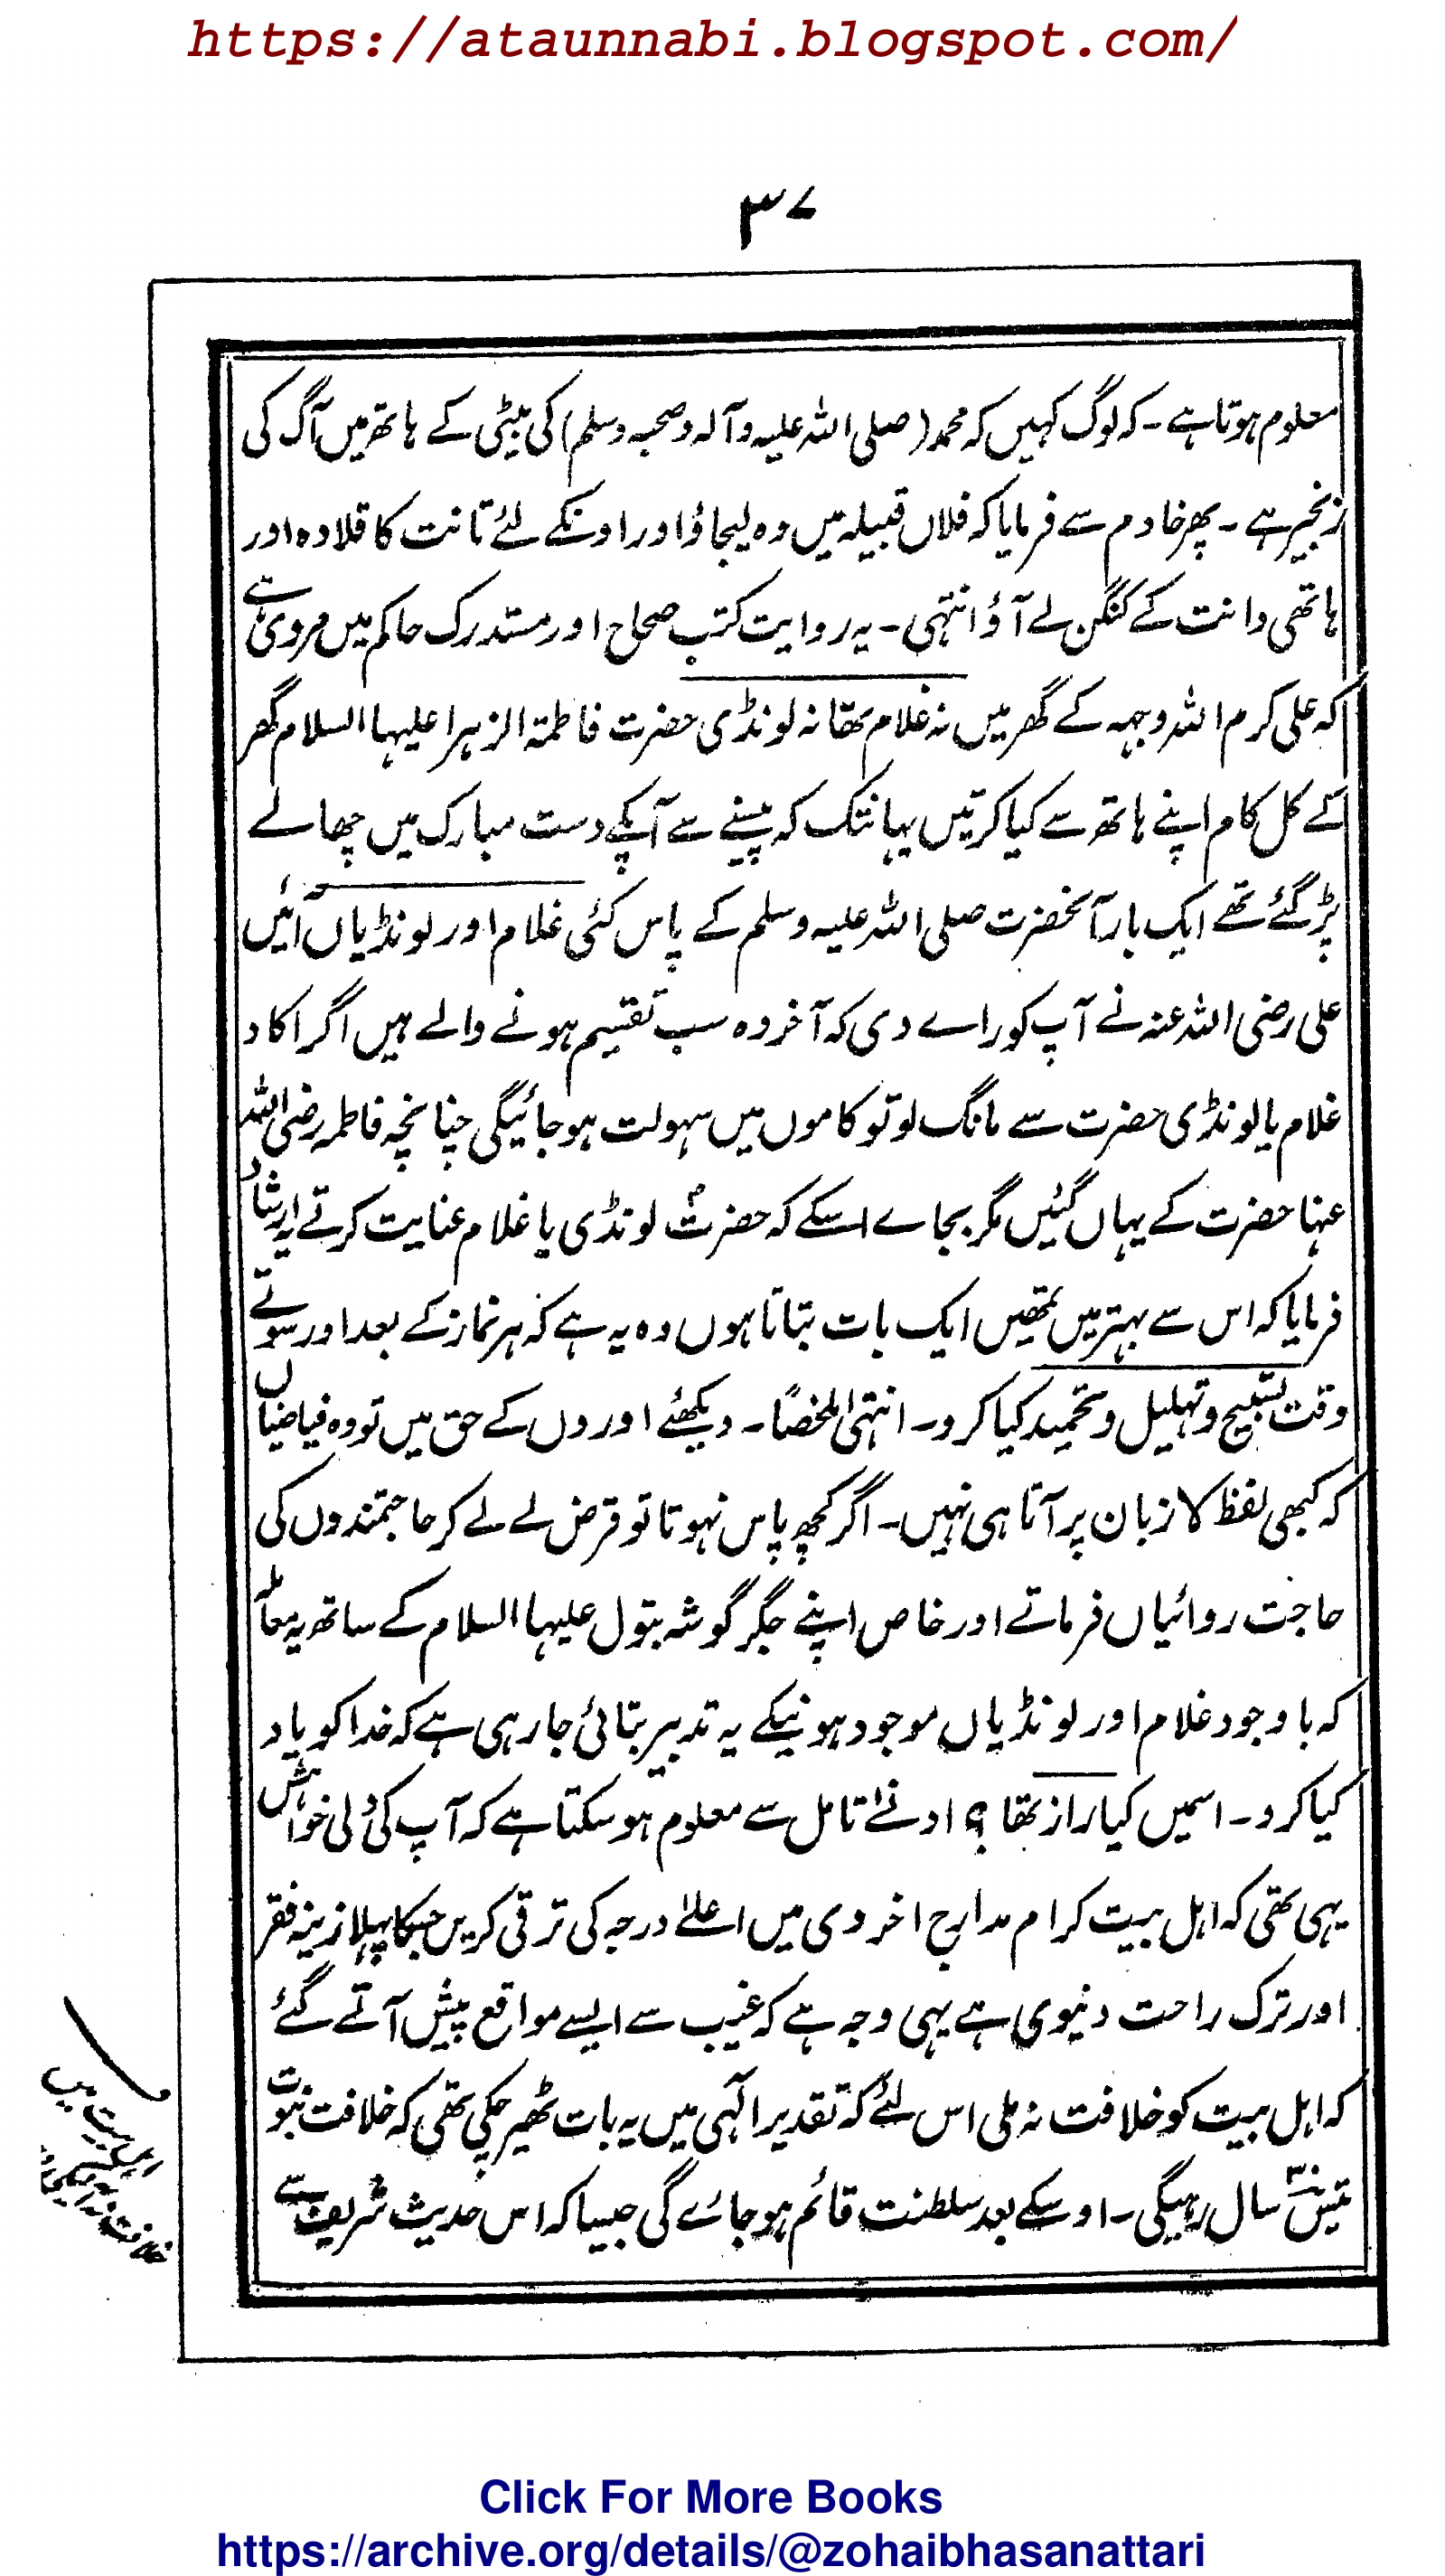 https://ataunnabi.blogspot.com/
۳۷
معلوم ہوتا ہے۔ کہ لوگ کہیں کہ محمد (صلی اللہ علیہ وآلہ وصحبہ وسلم) کی بیٹی کے ہاتھ میں آگ کی
زنجیر ہے۔ پھر خادم سے فرمایا کہ فلاں قبیلہ میں وہ لیجاؤ اور اونکے لئے تانت کا قلادہ اور
ہاتھی دانت کے کنگن لے آؤ انتہی۔ یہ روایت کتب صحاح اور مستدرک حاکم میں مروی ہے
کہ علی کرم اللہ وجہہ کے گھر میں نہ غلام تھا نہ لونڈی حضرت فاطمۃ الزہرا علیہا السلام گھر
کے کل کام اپنے ہاتھ سے کیا کرتیں یہانتک کہ پیسنے سے آپکے دست مبارک میں چھالے
پڑ گئے تھے ایک بار آنحضرت صلی اللہ علیہ وسلم کے پاس کئی غلام اور لونڈیاں آئیں
علی رضی اللہ عنہ نے آپ کو راے دی کہ آخر وہ سب تقسیم ہونے والے ہیں اگر اکاد
غلام یا لونڈی حضرت سے مانگ لو تو کاموں میں سہولت ہوجائیگی چنانچہ فاطمہ رضی اللہ
عنہا حضرت کے یہاں گئیں مگر بجاے اسکے کہ حضرتؐ لونڈی یا غلام عنایت کرتے یہ ارشاد
فرمایا کہ اس سے بہتر میں تمھیں ایک بات بتاتا ہوں وہ یہ ہے کہ ہر نماز کے بعد اور سوتے
وقت تسبیح وتہلیل وتحمید کیا کرو۔ انتہیٰ ملخصًا۔ دیکھئے اوروں کے حق میں تو وہ فیاضیاں
کہ کبھی لفظ لا زبان پر آتا ہی نہیں۔ اگر کچھ پاس نہوتا تو قرض لے لے کر حاجتمندوں کی
حاجت روائیاں فرماتے اور خاص اپنے جگر گوشہ بتول علیہا السلام کے ساتھ یہ معاملہ
کہ با وجود غلام اور لونڈیاں موجود ہونیکے یہ تدبیر بتائی جارہی ہے کہ خدا کو یاد
کیا کرو۔ اسمیں کیا راز تھا؟ ادنےٰ تامل سے معلوم ہوسکتا ہے کہ آپ کی دلی خواہش
یہی تھی کہ اہل بیت کرام مدارج اخروی میں اعلےٰ درجہ کی ترقی کریں جسکا پہلا زینہ فقر
اور ترک راحت دنیوی ہے یہی وجہ ہے کہ غیب سے ایسے مواقع پیش آتے گئے
کہ اہل بیت کو خلافت نہ ملی اس لئے کہ تقدیر الٰہی میں یہ بات ٹھیر چکی تھی کہ خلافت نبوت
تیس سال رہیگی۔ اوسکے بعد سلطنت قائم ہوجائے گی جیسا کہ اس حدیث شریف سے
Click For More Books
https://archive.org/details/@zohaibhasanattari